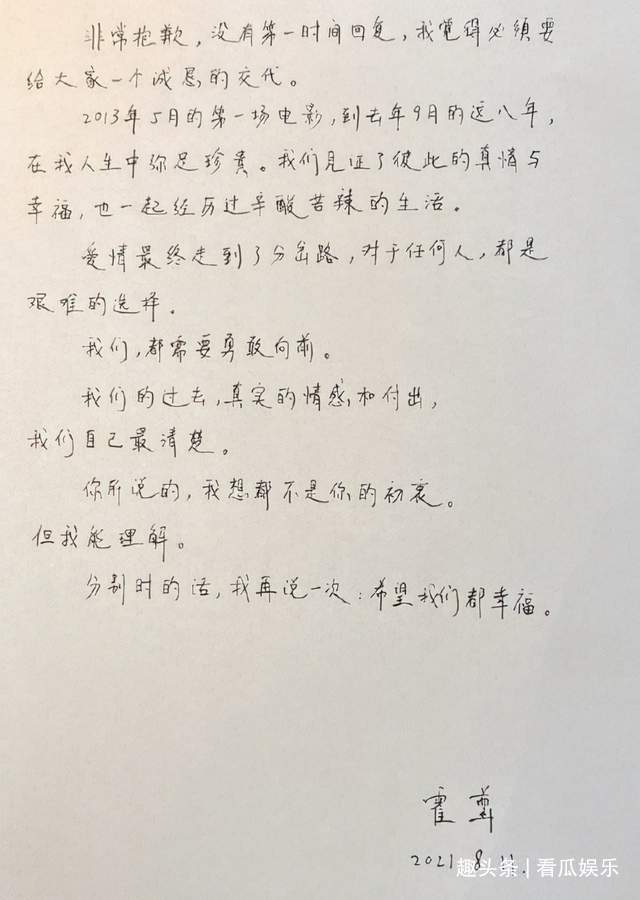 非常抱歉，没有第一时间回复，我覺得必須要
给大家一个诚恳的交代。
2013年5月的第一场电影，到去年9月的这八年，
在我人生中弥足珍貴。我们见证了彼此的真情与
幸福，也一起经历过辛酸苦辣的生活。
爱情最终走到了分岔路，对于任何人，都是
艰难的选择。
我们，都需要勇敢向前。
我们的过去，真实的情感和付出，
我们自己最清楚。
你所说的，我想都不是你的初衷。
但我能理解。
分别时的话，我再说一次：希望我们都幸福。
霍尊
2021.8.11.
趣头条 | 看瓜娱乐